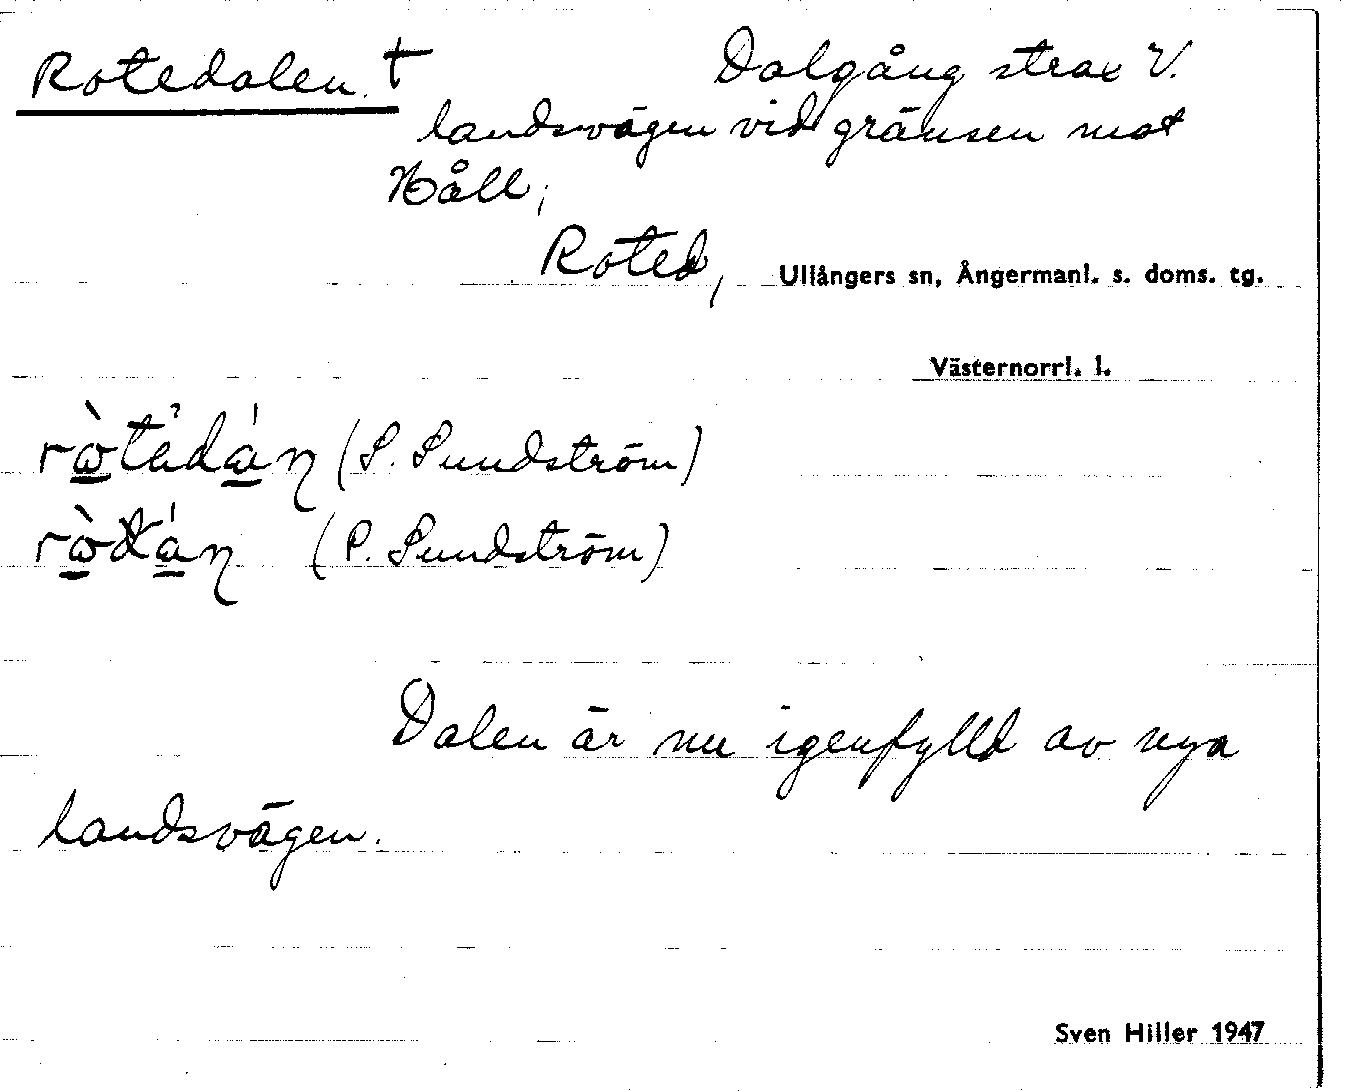 Rotedalen. † Dalgång strax V.
landsvägen vid gränsen mot
Håll;
Roted, Ullångers sn, Ångermanl. s. doms. tg.
Västernorrl. l.
(S. Sundström)
(P. Sundström)
Dalen är nu igenfylld av nya
landsvägen.
Sven Hiller 1947